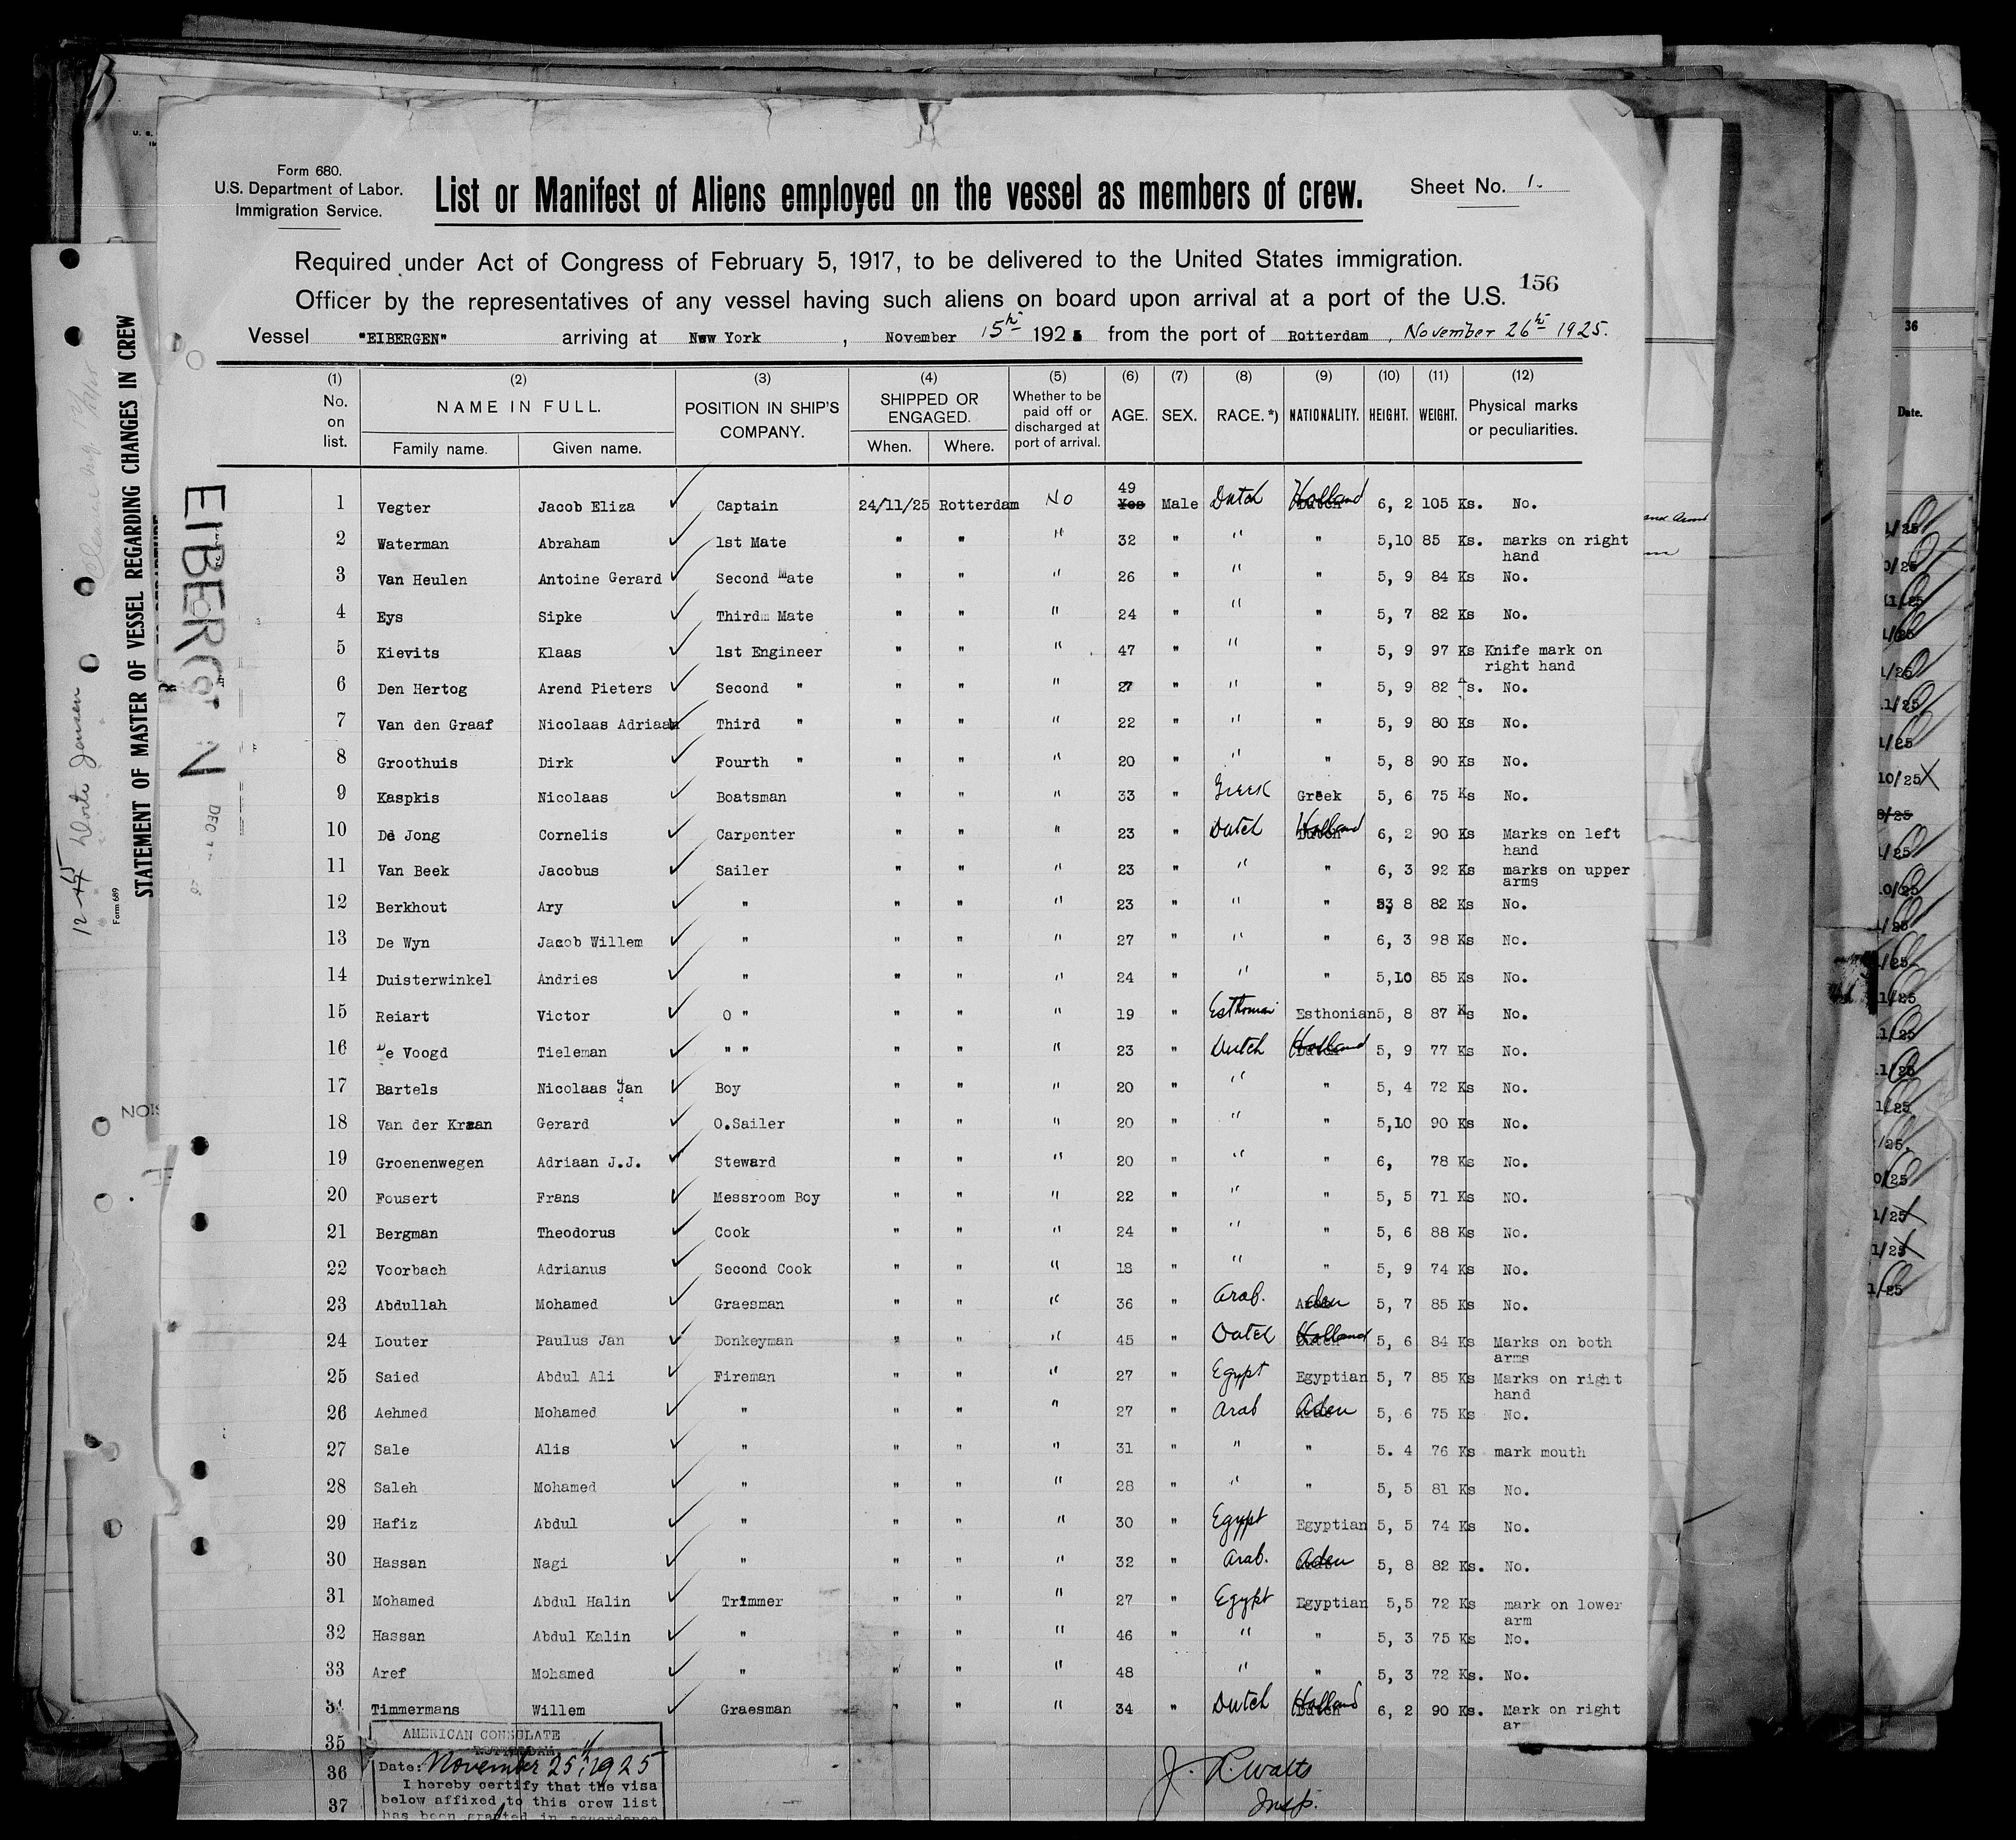 Form 680.
U.S. Department of Labor.
Immigration Service.
List or Manifest of Aliens employed on the vessel as members of crew.
Sheet No. 1.
Required under Act of Congress of February 5, 1917, to be delivered to the United States immigration.
Officer by the representatives of any vessel having such aliens on board upon arrival at a port of the U.S.
156
Vessel "EIBERGEN" arriving at New York, November 15th 1925 from the port of Rotterdam, November 26th 1925.
(1) (2) (3) (4) (5) (6) (7) (8) (9) (10) (11) (12)
No. on list. NAME IN FULL. POSITION IN SHIP'S COMPANY. SHIPPED OR ENGAGED. Whether to be paid off or discharged at port of arrival. AGE. SEX. RACE.*) NATIONALITY. HEIGHT. WEIGHT. Physical marks or peculiarities.
Family name. Given name. When. Where.
1 Vegter Jacob Eliza ✓ Captain 24/11/25 Rotterdam No 49 Yes Male Dutch Holland 6, 2 105 Ks. No.
2 Waterman Abraham ✓ 1st Mate " " " 32 " " " 5,10 85 Ks. marks on right hand
3 Van Heulen Antoine Gerard ✓ Second Mate " " " 26 " " " 5, 9 84 Ks No.
4 Eys Sipke ✓ Thirdm Mate " " " 24 " " " 5, 7 82 Ks No.
5 Kievits Klaas ✓ 1st Engineer " " " 47 " " " 5, 9 97 Ks Knife mark on right hand
6 Den Hertog Arend Pieters ✓ Second " " " " 27 " " " 5, 9 82 Ks. No.
7 Van den Graaf Nicolaas Adriaan ✓ Third " " " " 22 " " " 5, 9 80 Ks No.
8 Groothuis Dirk ✓ Fourth " " " " 20 " " " 5, 8 90 Ks No.
9 Kaspkis Nicolaas ✓ Boatsman " " " 33 " Greek Greek 5, 6 75 Ks No.
10 De Jong Cornelis ✓ Carpenter " " " 23 " Dutch Holland 6, 2 90 Ks Marks on left hand
11 Van Beek Jacobus ✓ Sailer " " " 23 " " " 6, 3 92 Ks marks on upper arms
12 Berkhout Ary ✓ " " " " 23 " " " 5, 8 82 Ks No.
13 De Wyn Jacob Willem ✓ " " " " 27 " " " 6, 3 98 Ks No.
14 Duisterwinkel Andries ✓ " " " " 24 " " " 5,10 85 Ks No.
15 Reiart Victor ✓ O " " " " 19 " Esthonian Esthonian 5, 8 87 Ks No.
16 De Voogd Tieleman ✓ " " " " " 23 " Dutch Holland 5, 9 77 Ks No.
17 Bartels Nicolaas Jan ✓ Boy " " " 20 " " " 5, 4 72 Ks No.
18 Van der Kraan Gerard ✓ O.Sailer " " " 20 " " " 5,10 90 Ks No.
19 Groenenwegen Adriaan J.J. ✓ Steward " " " 20 " " " 6, 78 Ks No.
20 Fousert Frans ✓ Messroom Boy " " " 22 " " " 5, 5 71 Ks NO.
21 Bergman Theodorus ✓ Cook " " " 24 " " " 5, 6 88 Ks No.
22 Voorbach Adrianus ✓ Second Cook " " " 18 " " " 5, 9 74 Ks No.
23 Abdullah Mohamed ✓ Graesman " " " 36 " Arab. Aden 5, 7 85 Ks No.
24 Louter Paulus Jan ✓ Donkeyman " " " 45 " Dutch Holland 5, 6 84 Ks Marks on both arms
25 Saied Abdul Ali ✓ Fireman " " " 27 " Egypt Egyptian 5, 7 85 Ks Marks on right hand
26 Aehmed Mohamed ✓ " " " " 27 " Arab Aden 5, 6 75 Ks No.
27 Sale Alis ✓ " " " " 31 " " " 5. 4 76 Ks mark mouth
28 Saleh Mohamed ✓ " " " " 28 " " " 5, 5 81 Ks No.
29 Hafiz Abdul ✓ " " " " 30 " Egypt Egyptian 5, 5 74 Ks No.
30 Hassan Nagi ✓ " " " " 32 " Arab. Aden 5, 8 82 Ks. No.
31 Mohamed Abdul Halin ✓ Trimmer " " " 27 " Egypt Egyptian 5,5 72 Ks mark on lower arm
32 Hassan Abdul Kalin ✓ " " " " 46 " " " 5, 3 75 Ks No.
33 Aref Mohamed ✓ " " " " 48 " " " 5, 3 72 Ks. No.
34 Timmermans Willem ✓ Graesman " " " 34 " Dutch Holland 6, 2 90 Ks. Mark on right
35
36
37
AMERICAN CONSULATE
ROTTERDAM
Date: November 25th 1925
I hereby certify that the visa
below affixed to this crew list
has been granted in accordance
J. R. Walts
Insp.
EIBERGEN
DEC
STATEMENT OF MASTER OF VESSEL REGARDING CHANGES IN CREW
Form 689
36
Date.